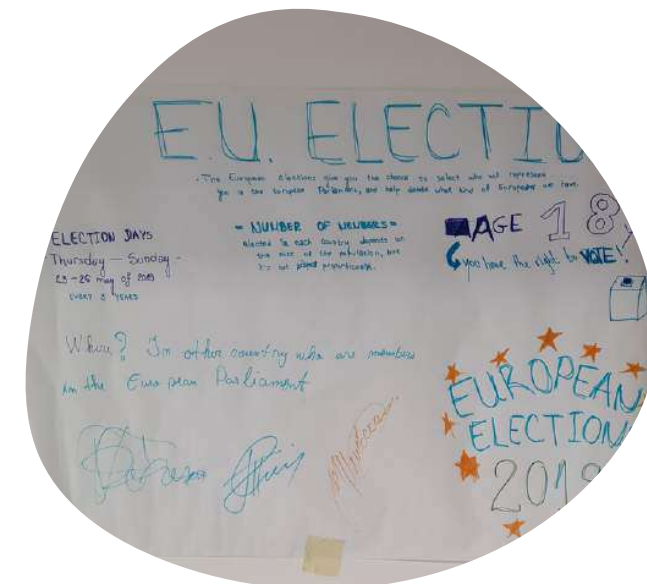 E.U. ELECTIO
- The European elections give you the chance to select who will represent
you in the European Parliament, and help decide what kind of Europe we have.
ELECTION DAYS
Thursday - Sunday -
23-26 may of 2019
EVERY 5 YEARS
= NUMBER OF MEMBERS=
elected in each country depends on
the size of the population, but
it's not proportionate.
AGE 18
you have the right to VOTE!
Where? In other country who are members
in the European Parliament
EUROPEAN
ELECTION
2019